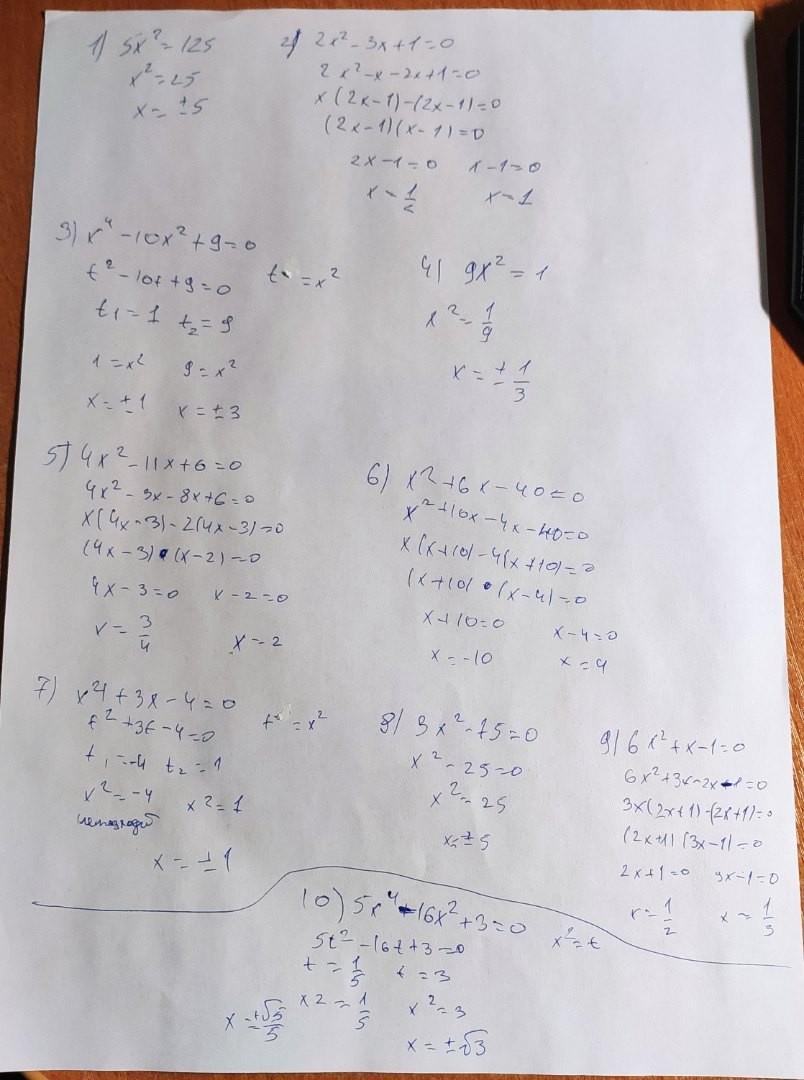 1) 5x² = 125
x² = 25
x = ±5
2) 2x² - 3x + 1 = 0
2x² - x - 2x + 1 = 0
x(2x-1) - (2x-1) = 0
(2x-1)(x-1) = 0
2x - 1 = 0 x - 1 = 0
x = 1/2 x = 1
3) x⁴ - 10x² + 9 = 0
t² - 10t + 9 = 0 t = x²
t₁ = 1 t₂ = 9
1 = x² 9 = x²
x = ±1 x = ±3
4) 9x² = 1
x² = 1/9
x = ±1/3
5) 4x² - 11x + 6 = 0
4x² - 3x - 8x + 6 = 0
x(4x-3) - 2(4x-3) = 0
(4x-3)·(x-2) = 0
4x - 3 = 0 x - 2 = 0
x = 3/4 x = 2
6) x² + 6x - 40 = 0
x² + 10x - 4x - 40 = 0
x(x+10) - 4(x+10) = 0
(x+10)·(x-4) = 0
x + 10 = 0 x - 4 = 0
x = -10 x = 4
7) x⁴ + 3x - 4 = 0
t² + 3t - 4 = 0 t = x²
t₁ = -4 t₂ = 1
x² = -4 x² = 1
x = ±1
8) 3x² - 75 = 0
x² - 25 = 0
x² = 25
x = ±5
9) 6x² + x - 1 = 0
6x² + 3x - 2x - 1 = 0
3x(2x+1) - (2x+1) = 0
(2x+1)(3x-1) = 0
2x + 1 = 0 3x - 1 = 0
x = 1/2 x = 1/3
10) 5x⁴ - 16x² + 3 = 0
5t² - 16t + 3 = 0 x² = t
t = 1/5 t = 3
x² = 1/5 x² = 3
x = ±√5/5 x = ±√3